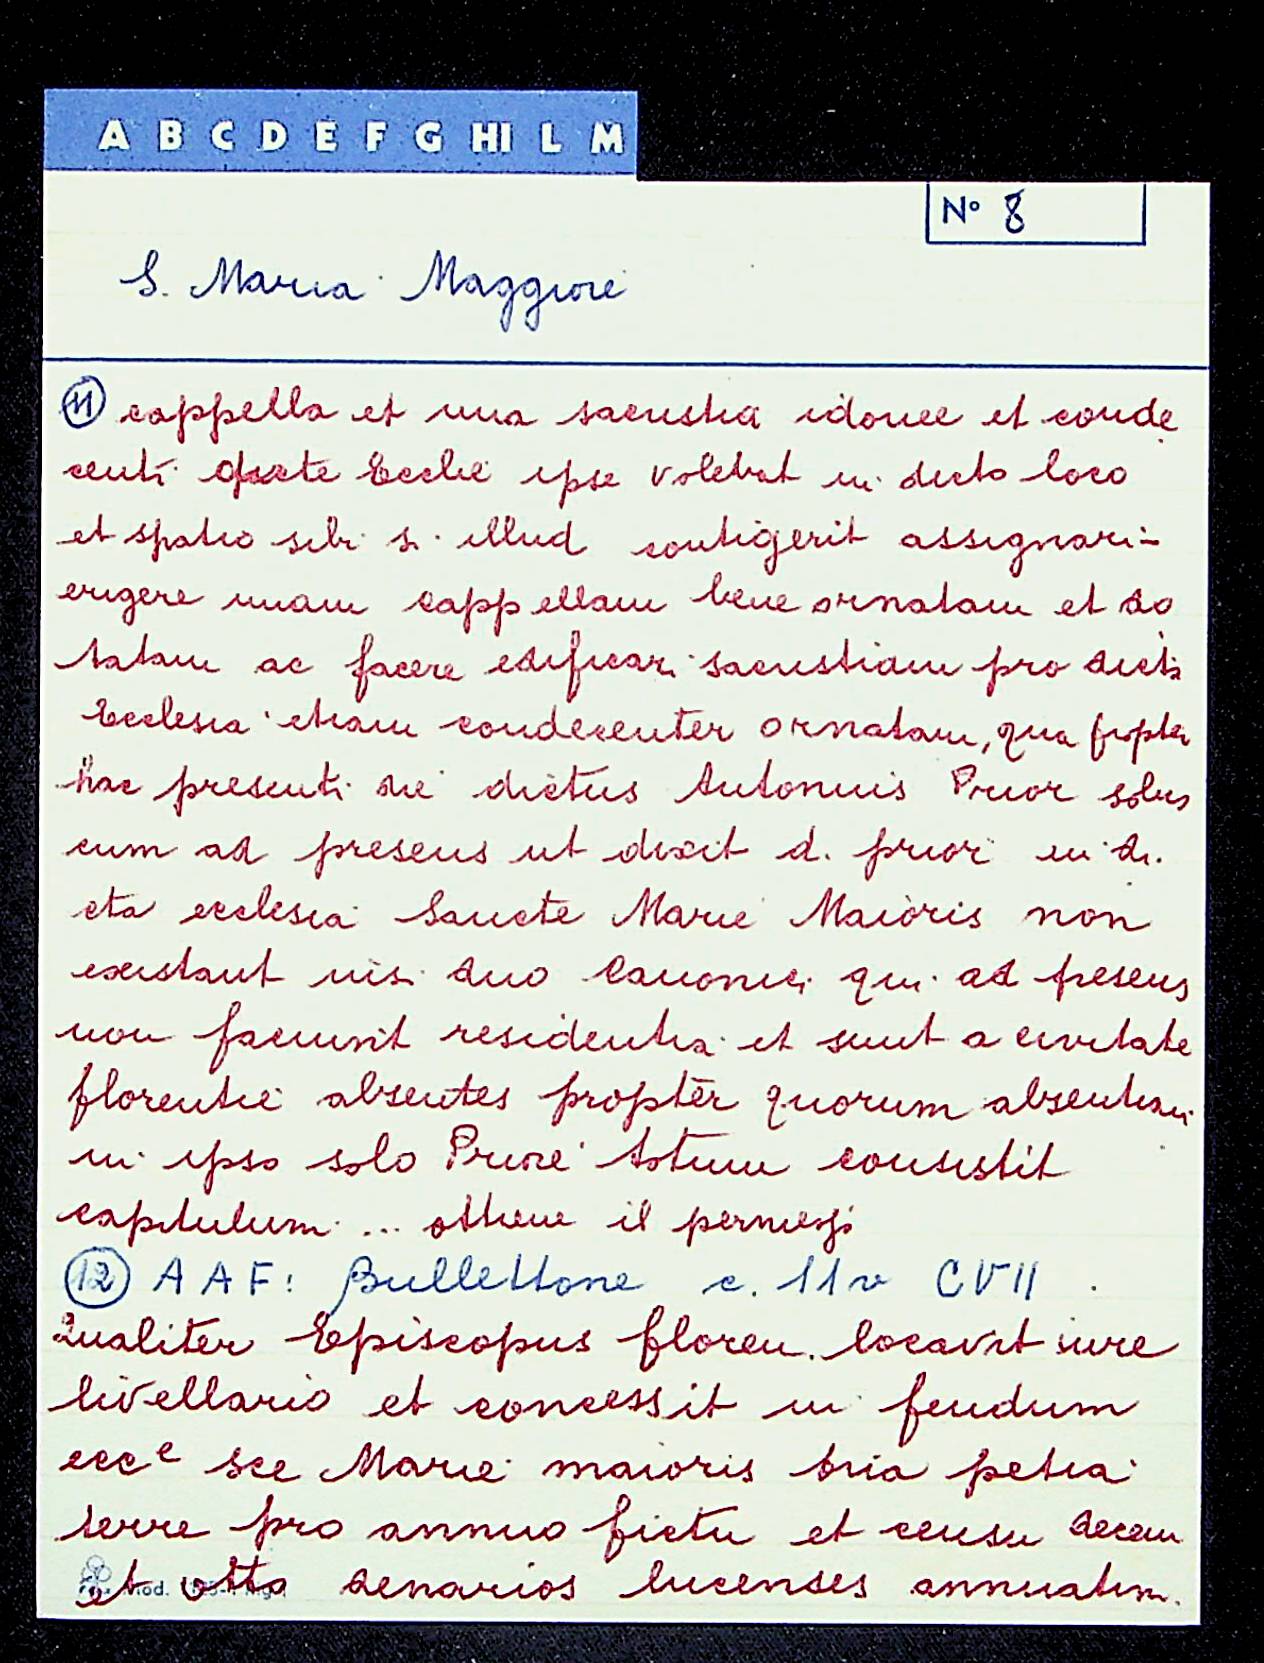 A B C D E F G HI L M
Nº 8
S. Maria Maggiore
11 cappella et una sacrestia idonee et conde
centi dicte Ecclie ipse volebat in dicto loco
et spatio sibi si illud contigerit assignari-
erigere unam cappellam bene ornatam et do
tatam ac facere edificari sacrestiam pro dicta
Ecclesia etiam condecenter ornatam, qua propter
hac presenti die dictus Antonius Prior solus
cum ad presens ut dixit d. prior in di
cta ecclesia Sancte Marie Maioris non
existant nisi duo Canonici qui ad presens
non faciunt residentia et sunt a civitate
florentie absentes propter quorum absentiam
in ipso solo Priore totum consistit
capitulum ... ottiene il permesso
12 AAF: Bullettone c. 11v CVII
Qualiter Episcopus floren. locavit iure
livellario et concessit in feudum
ecce sce Marie maioris tria petia
terre pro annuo fictu et censu decem
et otto denarios lucenses annuatim.